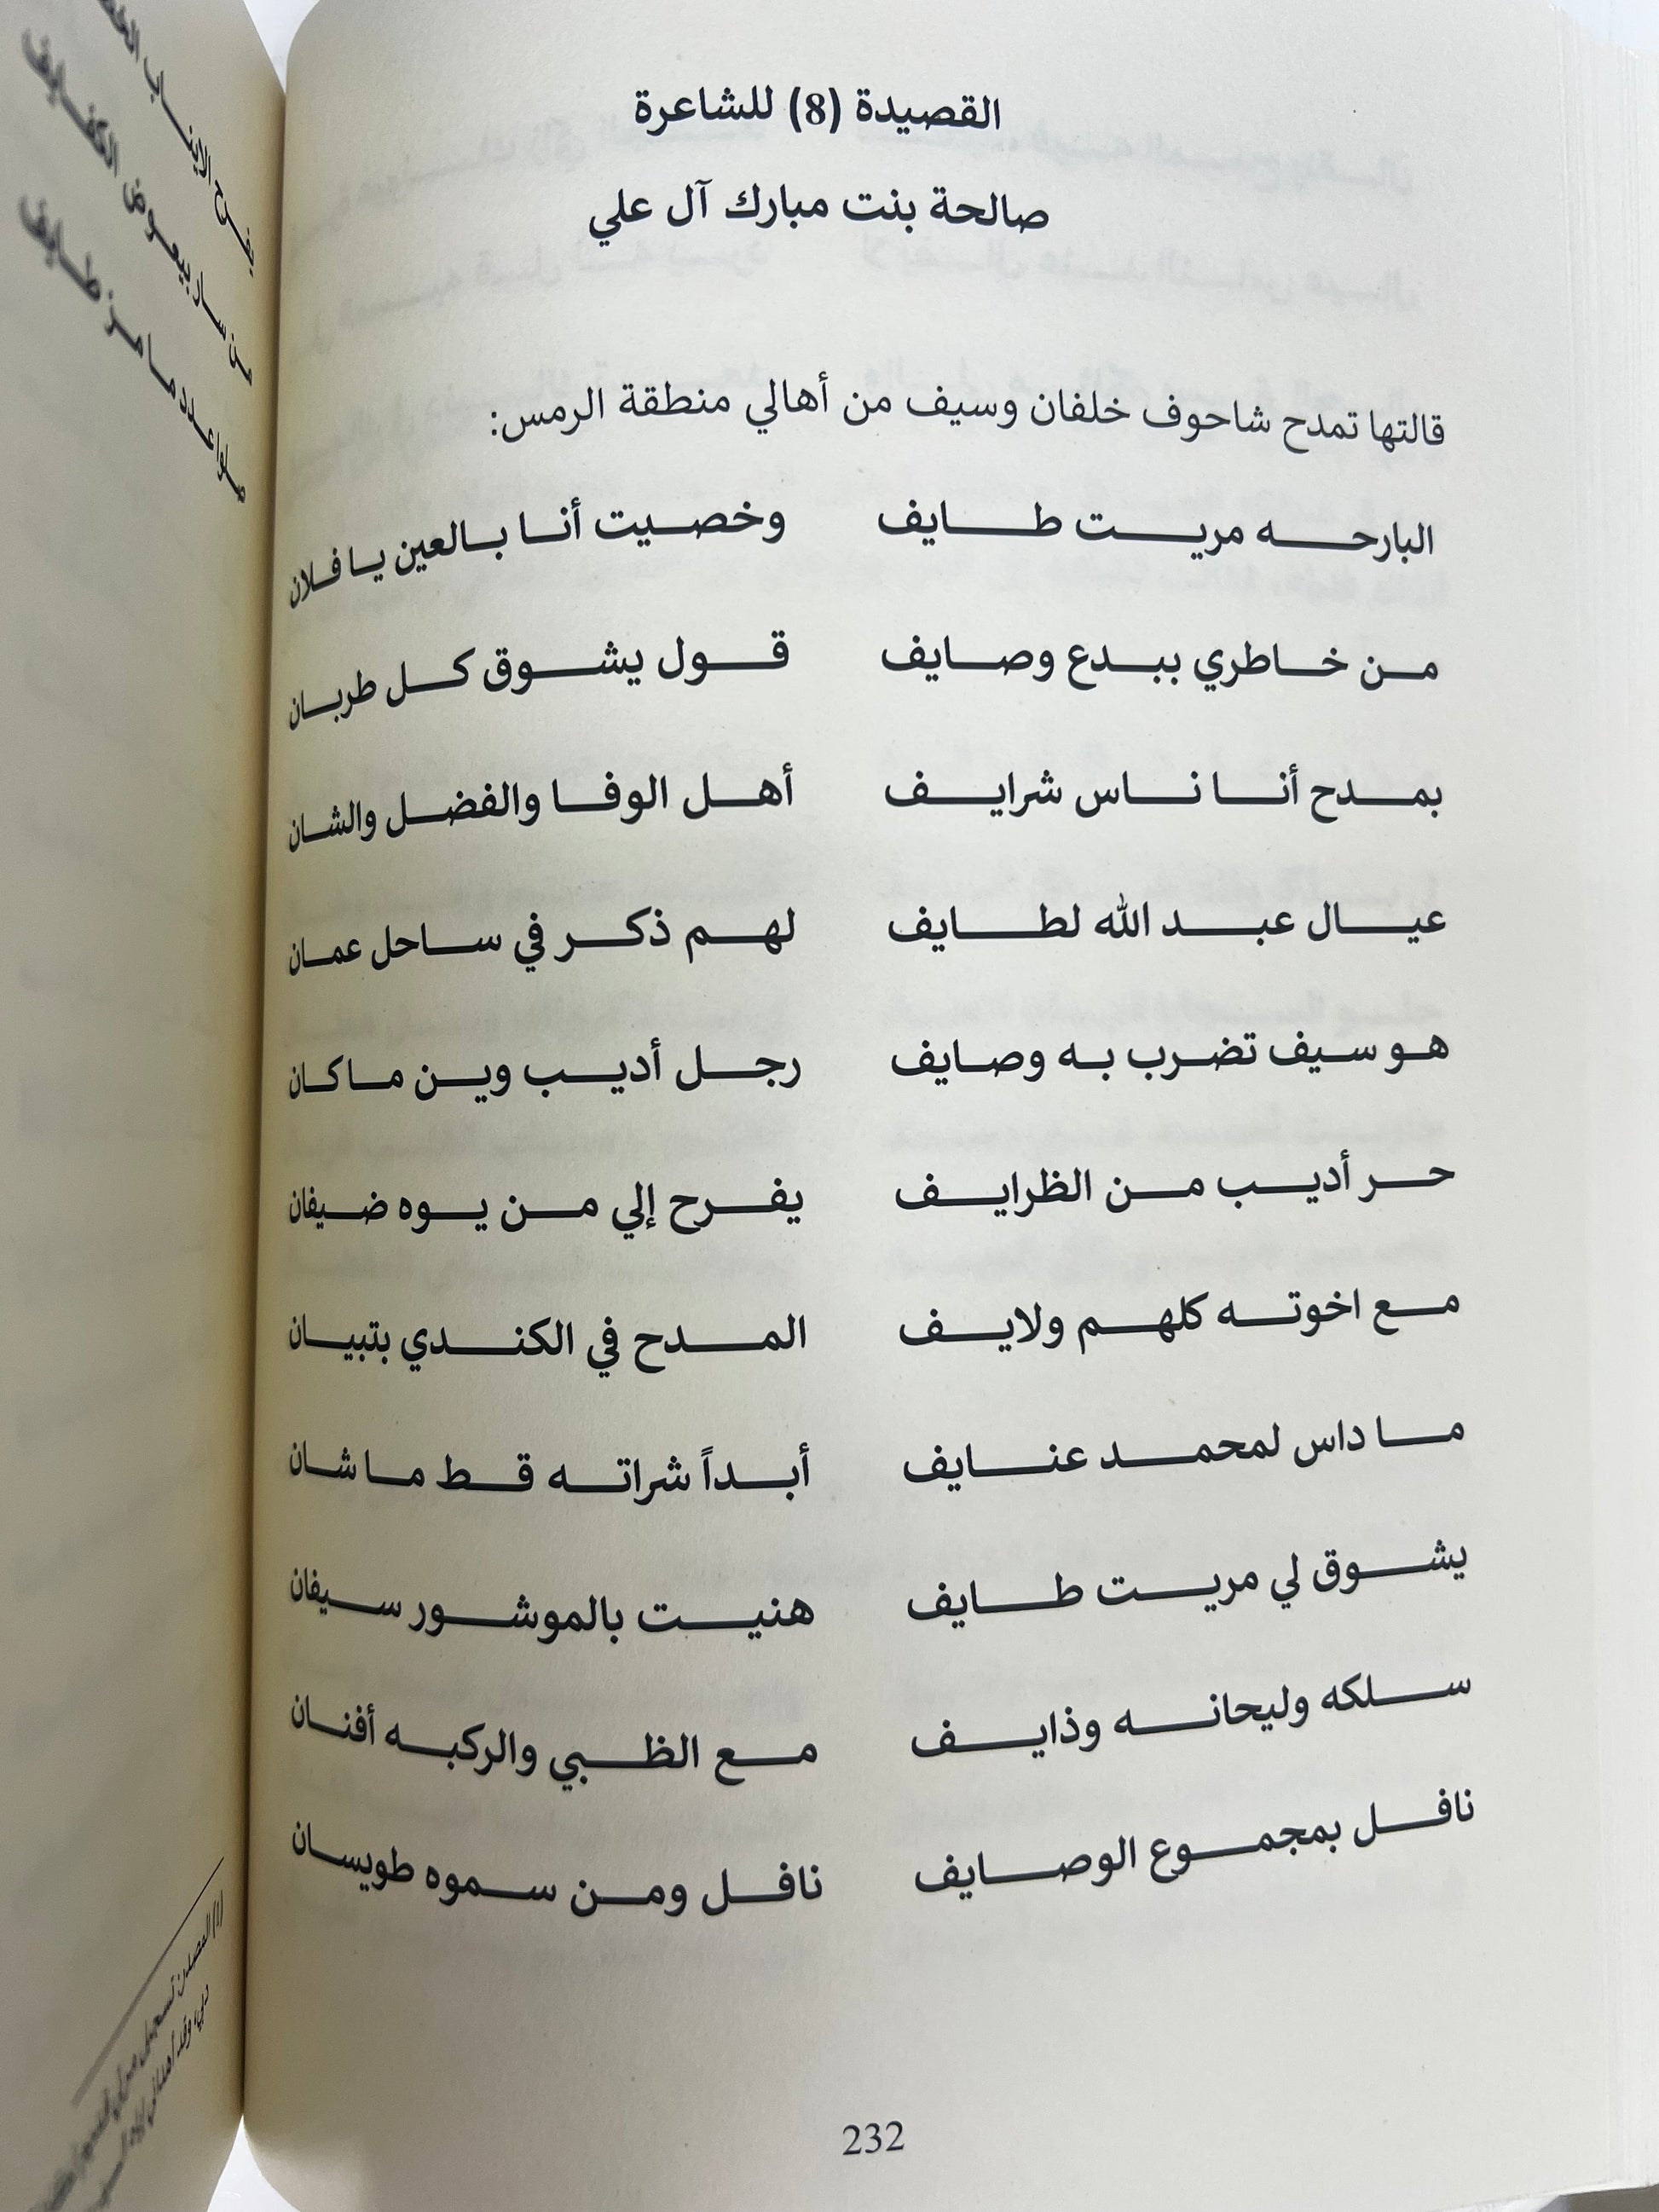 القصيدة (8) للشاعرة
صالحة بنت مبارك آل علي
قالتها تمدح شاحوف خلفان وسيف من أهالي منطقة الرمس:
البارحه مريت طايف وخصيت أنا بالعين يا فلان
من خاطري ببدع وصايف قول يشوق كل طربان
بمدح أنا ناس شرايف أهل الوفا والفضل والشان
عيال عبد الله لطايف لهم ذكر في ساحل عمان
هو سيف تضرب به وصايف رجل أديب وين ما كان
حر أديب من الظرايف يفرح إلي من يوه ضيفان
مع اخوته كلهم ولايف المدح في الكندي بتبيان
ما داس لمحمد عنايف أبداً شراته قط ما شان
يشوق لي مريت طايف هنيت بالموشور سيفان
سلكه وليحانه وذايف مع الظبي والركبه أفنان
نافل بمجموع الوصايف نافل ومن سموه طويسان
232